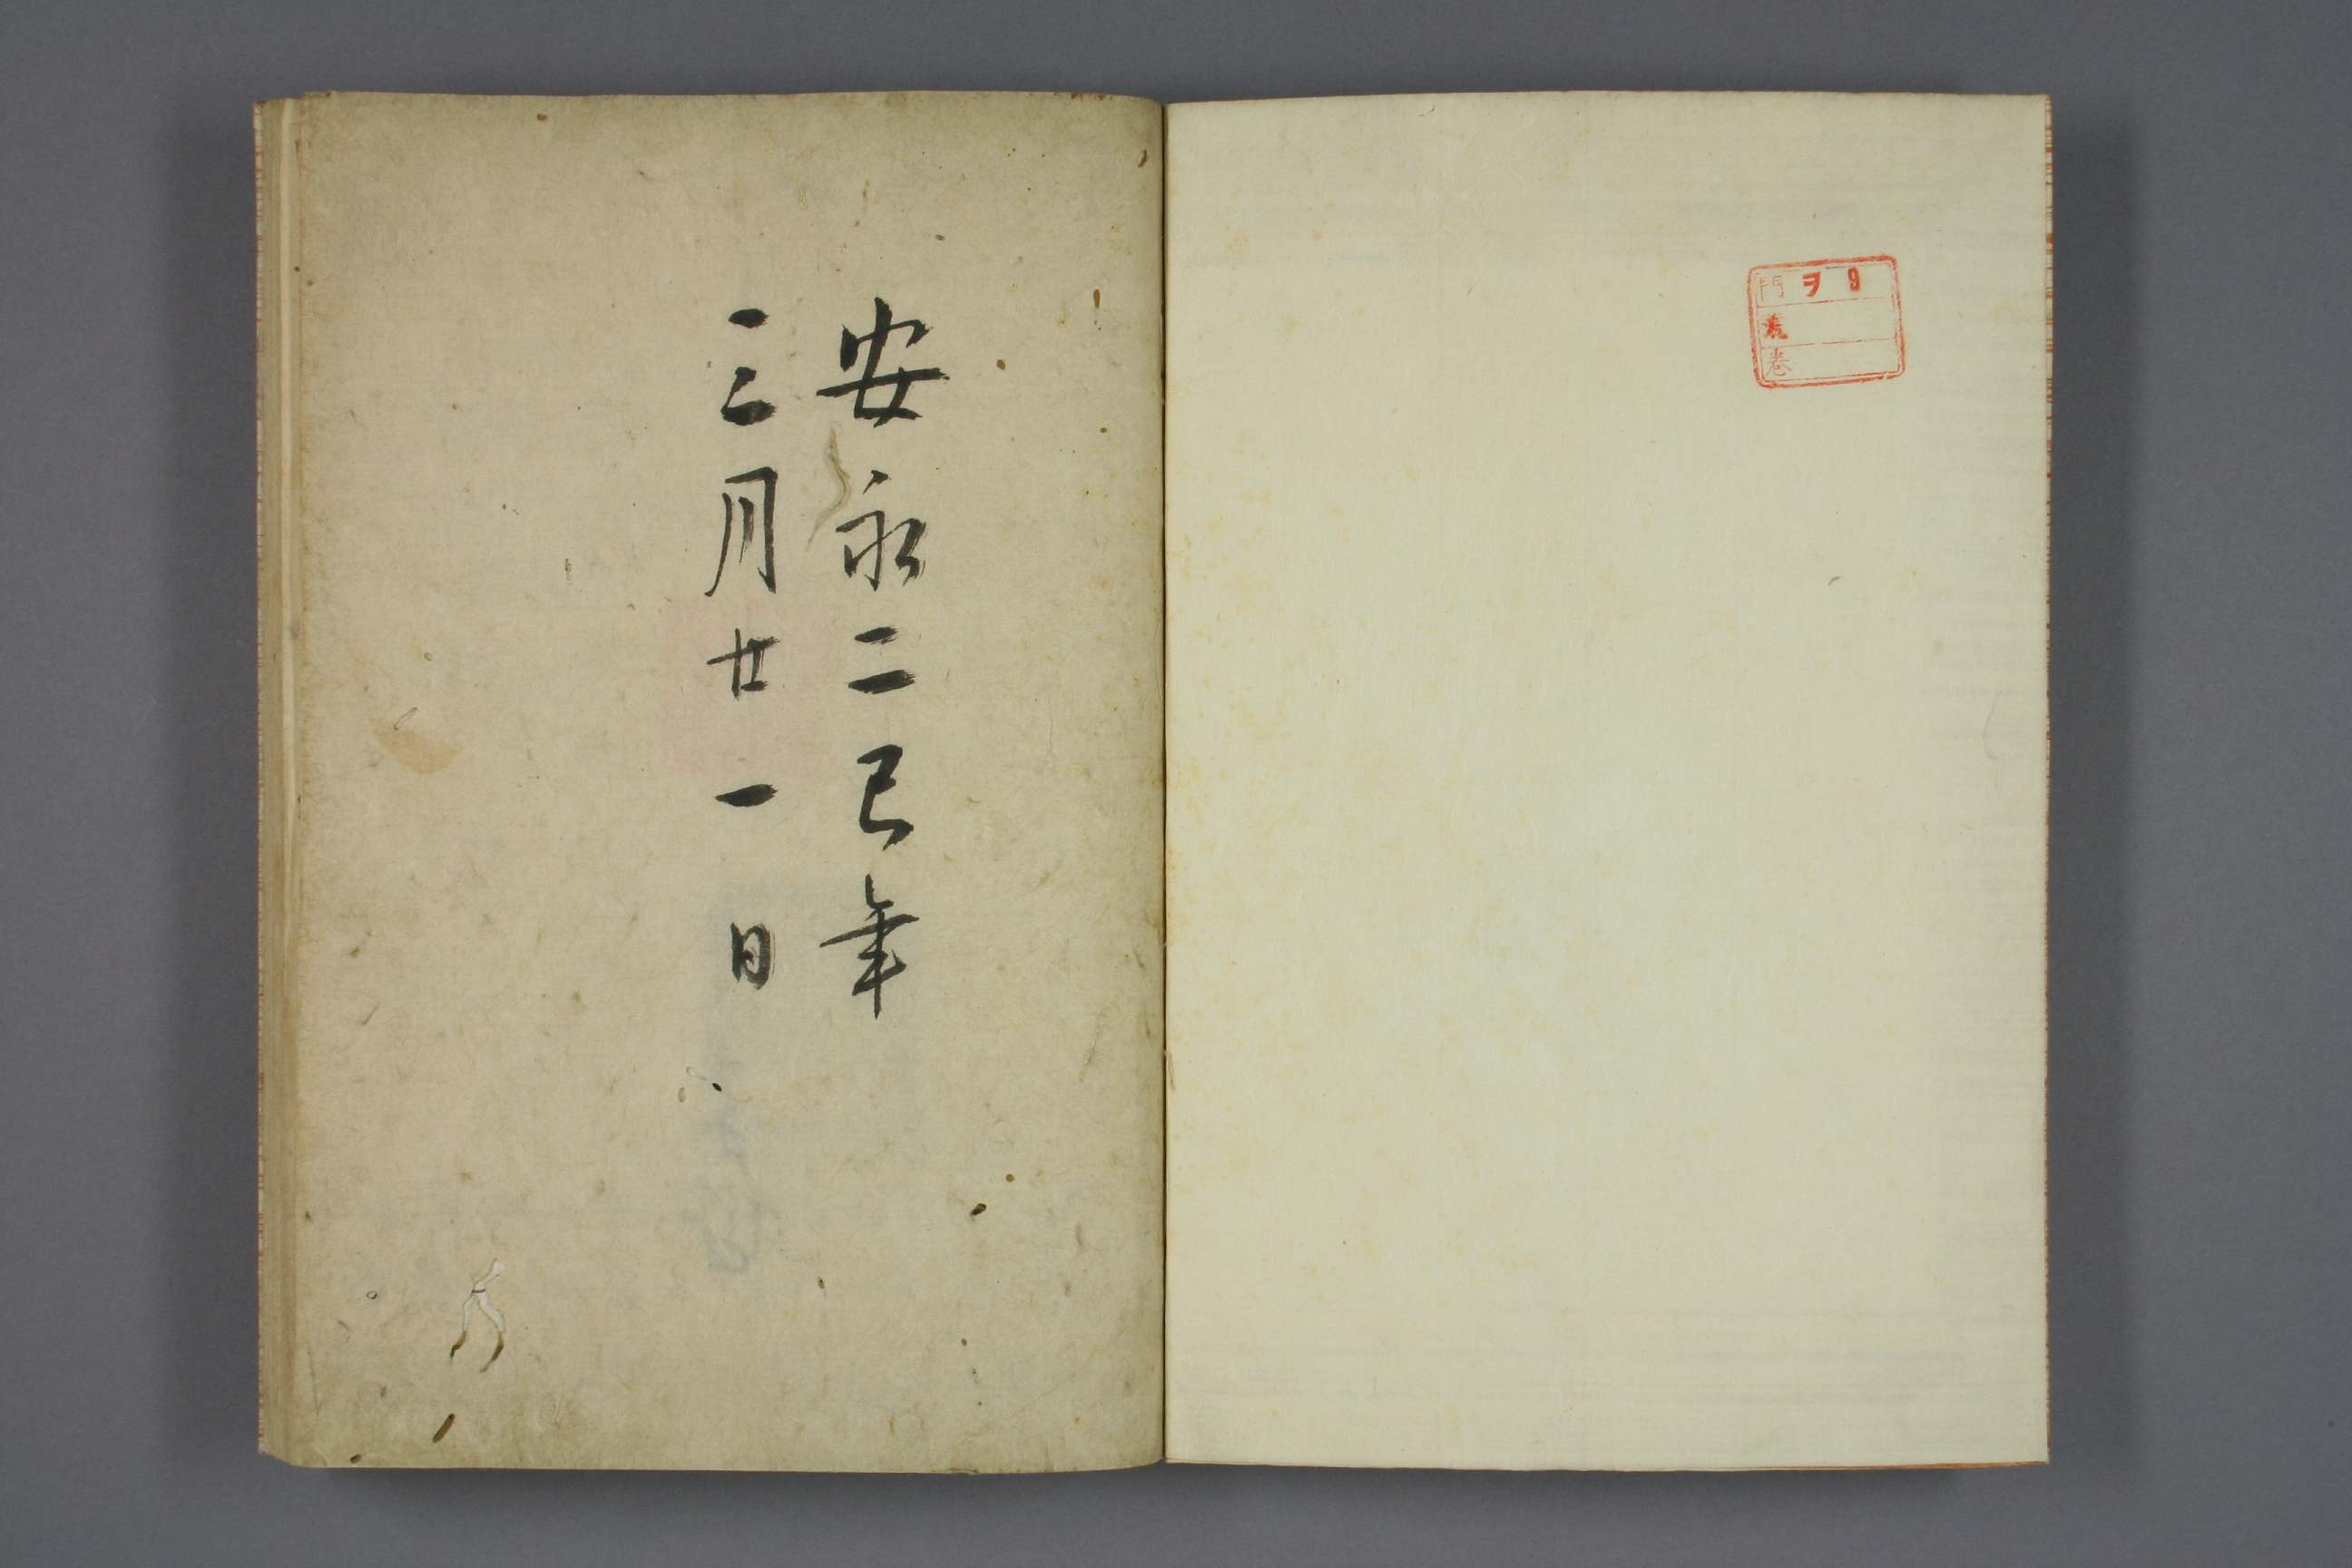 門 ヲ 9
號
卷
安永二巳年
三月廿一日